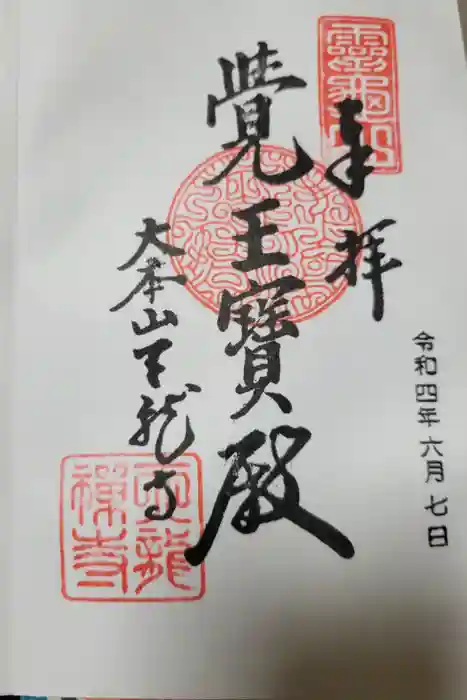 奉拝
令和四年六月七日
覺王寶殿
大本山天龍寺
靈龜山
天龍禅寺